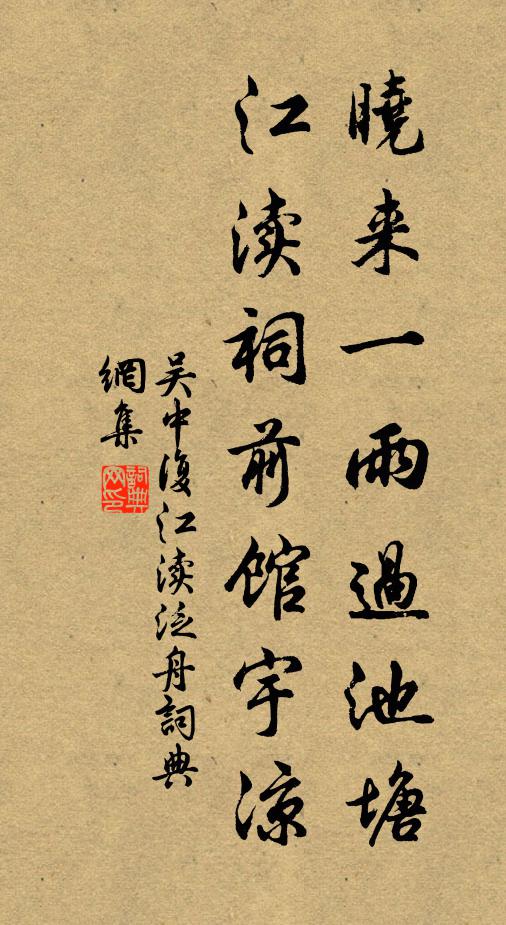 曉来一雨過池塘
江渎祠前館宇涼
吴中復江渎泛舟詞典
網集
詞典网印